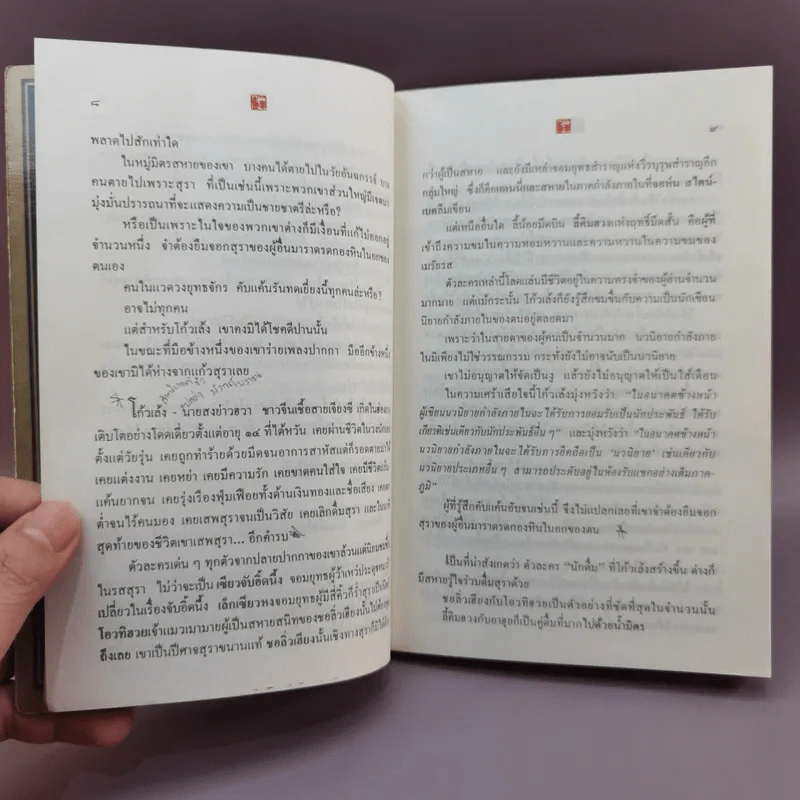 ๘
พลาดไปสักเท่าใด
ในหมู่มิตรสหายของเขา บางคนได้ตายไปในวัยอันฉกรรจ์ บาง
คนตายไปเพราะสุรา ที่เป็นเช่นนี้เพราะพวกเขาส่วนใหญ่มีเจตนา
มุ่งมั่นปรารถนาที่จะแสดงความเป็นชายชาตรีล่ะหรือ?
หรือเป็นเพราะในใจของพวกเขาต่างก็มีเงื่อนที่แก้ไม่ออกอยู่
จำนวนหนึ่ง จำต้องยืมจอกสุราของผู้อื่นมาราดรดกองหินในอกของ
ตนเอง
คนในแวดวงยุทธจักร คับแค้นรันทดเยี่ยงนี้ทุกคนล่ะหรือ?
อาจไม่ทุกคน
แต่สำหรับโก้วเล้ง เขาคงมิได้โชคดีปานนั้น
ในขณะที่มือข้างหนึ่งของเขาร่ายเพลงปากกา มืออีกข้างหนึ่ง
ของเขามิได้ห่างจากแก้วสุราเลย
โก้วเล้ง - นายสงย่าวฮวา ชาวจีนเชื้อสายเจียงซี เกิดในฮ่องกง
เติบโตอย่างโดดเดี่ยวตั้งแต่อายุ ๑๔ ที่ไต้หวัน เคยผ่านชีวิตในวงนักเลง
ตั้งแต่วัยรุ่น เคยถูกทำร้ายด้วยมีดจนอาการสาหัสแต่ก็รอดตายมาได้
เคยแต่งงาน เคยหย่า เคยมีความรัก เคยขาดคนใส่ใจ เคยมีชีวิต
แค้นยากจน เคยรุ่งเรืองฟุ่มเฟือยทั้งด้านเงินทองและชื่อเสียง เคยตก
ต่ำจนไร้คนมอง เคยเสพสุราจนเป็นวิสัย เคยเลิกดื่มสุรา และในบท
สุดท้ายของชีวิตเขาเสพสุรา... อีกคำรบ
ตัวละครเด่น ๆ ทุกตัวจากปลายปากกาของเขาล้วนแต่นิยมชมชื่น
ในรสสุรา ไม่ว่าจะเป็น เซียวจับอิดนึ้ง จอมยุทธผู้ว้าเหว่ประดุจหมา
เปลี่ยวในเรื่องจับอิดนึ้ง เล็กเซียวหงจอมยุทธผู้มีสี่คิ้วก็ร่ำสุราเป็น
โอวทิฮวยเจ้าแมวเมามายผู้เป็นสหายสนิทของชอลิ่วเฮียงนั้นไม่ต้อง
ถึงเลย เขาเป็นปีศาจสุราขนานแท้ ชอลิ่วเฮียงนั้นเชิงทางสุราก็มิได้
๙
กว่าผู้เป็นสหาย และยังมีเหล่าจอมยุทธสำราญแห่งวีรบุรุษสำราญอีก
กลุ่มใหญ่ ซึ่งก็คือยอดนนี่และสหายในภาคกำลังภายในที่จอห์น สไตน์-
เบคลืมเขียน
แต่เหนืออื่นใด ลี้น้อยมีดบิน ลี้คิมฮวงแห่งฤทธิ์มีดสั้น คือผู้ที่
เข้าถึงความขมในความหอมหวานและความหวานในความขมของ
เมรัยรส
ตัวละครเหล่านี้โลดแล่นมีชีวิตอยู่ในความทรงจำของผู้อ่านจำนวน
มากมาย แต่แม้กระนั้น โก้วเล้งก็ยังรู้สึกขมขื่นกับความเป็นนักเขียน
นิยายกำลังภายในของตนอยู่ตลอดมา
เพราะว่าในสายตาของผู้คนเป็นจำนวนมาก นวนิยายกำลังภาย
ในมิเพียงไม่ใช่วรรณกรรม กระทั่งยังไม่อาจนับเป็นนวนิยาย
เขาไม่อนุญาตให้จัดเป็นงู แล้วยังไม่อนุญาตให้เป็นไส้เดือน
ในความเศร้าเสียใจนี้โก้วเล้งมุ่งหวังว่า "ในอนาคตข้างหน้า
ผู้เขียนนวนิยายกำลังภายในจะได้รับการยอมรับเป็นนักประพันธ์ ได้รับ
เกียรติเช่นเดียวกับนักประพันธ์อื่นๆ" และมุ่งหวังว่า "ในอนาคตข้างหน้า
นวนิยายกำลังภายในจะได้รับการยึดถือเป็น 'นวนิยาย' เช่นเดียวกับ
นวนิยายประเภทอื่นๆ สามารถประดับอยู่ในห้องรับแขกอย่างเต็มภาค-
ภูมิ"
ผู้ที่รู้สึกคับแค้นอับจนเช่นนี้ จึงไม่แปลกเลยที่เขาจำต้องยืมจอก
สุราของผู้อื่นมาราดรดกองหินในอกของตน
เป็นที่น่าสังเกตว่า ตัวละคร "นักดื่ม" ที่โก้วเล้งสร้างขึ้น ต่างก็
มีสหายรู้ใจร่วมดื่มสุราด้วย
ชอลิ่วเฮียงกับโอวทิฮวยเป็นตัวอย่างที่ชัดที่สุดในจำนวนนั้น
ลี้คิมฮวงกับอาฮุยก็เป็นคู่ดื่มที่มากไปด้วยน้ำมิตร